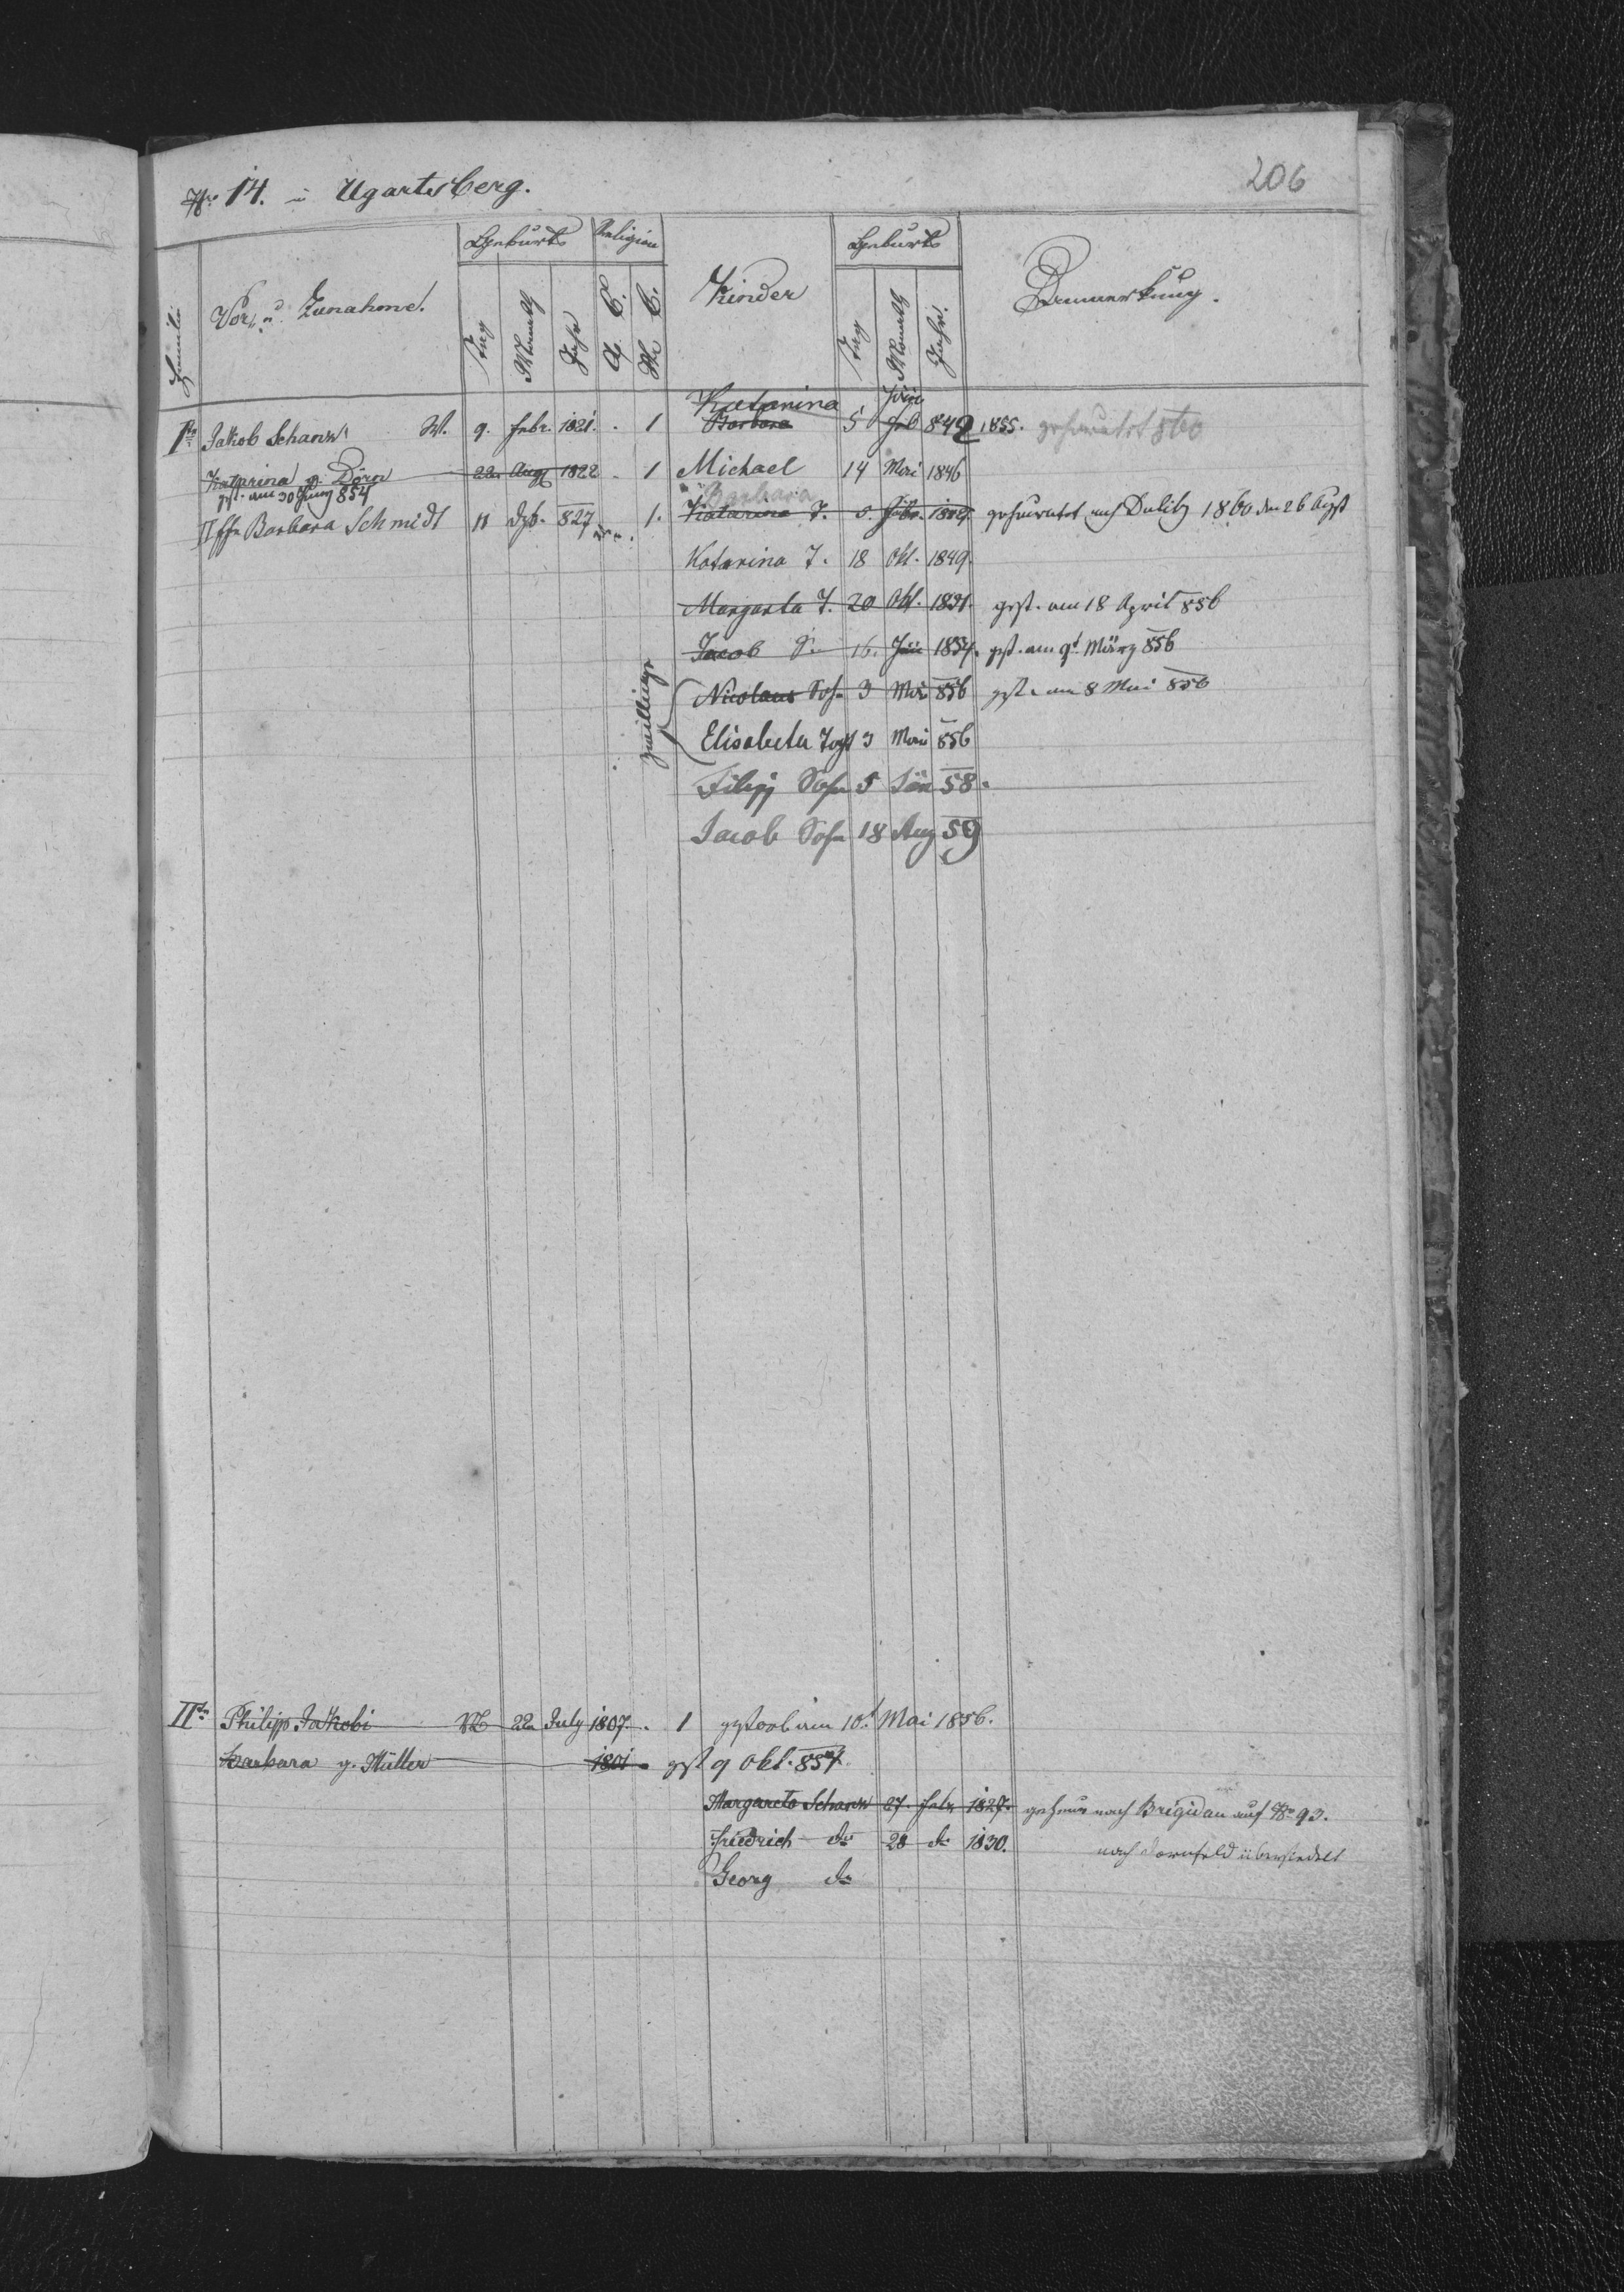 206
No 14. in Ugartsberg.
Familie Vor u. Zunahme. Geburts Religion Kinder Geburts Bemerkung.
Tag Monath Jahr A. C. H. C. Tag Monath Jahr.
Katarina Jän
Ite Jakob Schanz W. 9. Febr. 1821. . 1 Barbara 5 Feb 842 1855. geheurathet 860
Katharina g. Dörn 22 Aug 1822 . 1 Michael 14 Mai 1846
gst. am 30 Juny 854
Barbara
II Barbara Schmidt 11 Dzb. 827 1. Katarina T. geheurathet nach Dolitz 1860 den 26 Augst
Katarina T. 18 Okt. 1849.
Margareta T. 20 Okt. 1851. gest. am 18 April 856
Jacob S. 16. Jän 1854. gst. am 9t März 856
zwillinge
Nicolaus Sohn 3 Mai 856 gest. am 8 Mai 856
Elisabeta Togt 3 Mai 856
Filipp Sohn 5 Jän 58.
Jacob Sohn 18 Aug 59
IIte Philipp Jakobi 22 July 1807. . 1 gestorb am 10t Mai 1856.
Barbara g. Müller 1801 gst 9 Okt. 857
Margareta Schanz 27. Febr 1827. geheur nach Brigidau auf No 93.
Friedrich do 28 do 1830. nach Dornfeld übersiedelt
Georg do